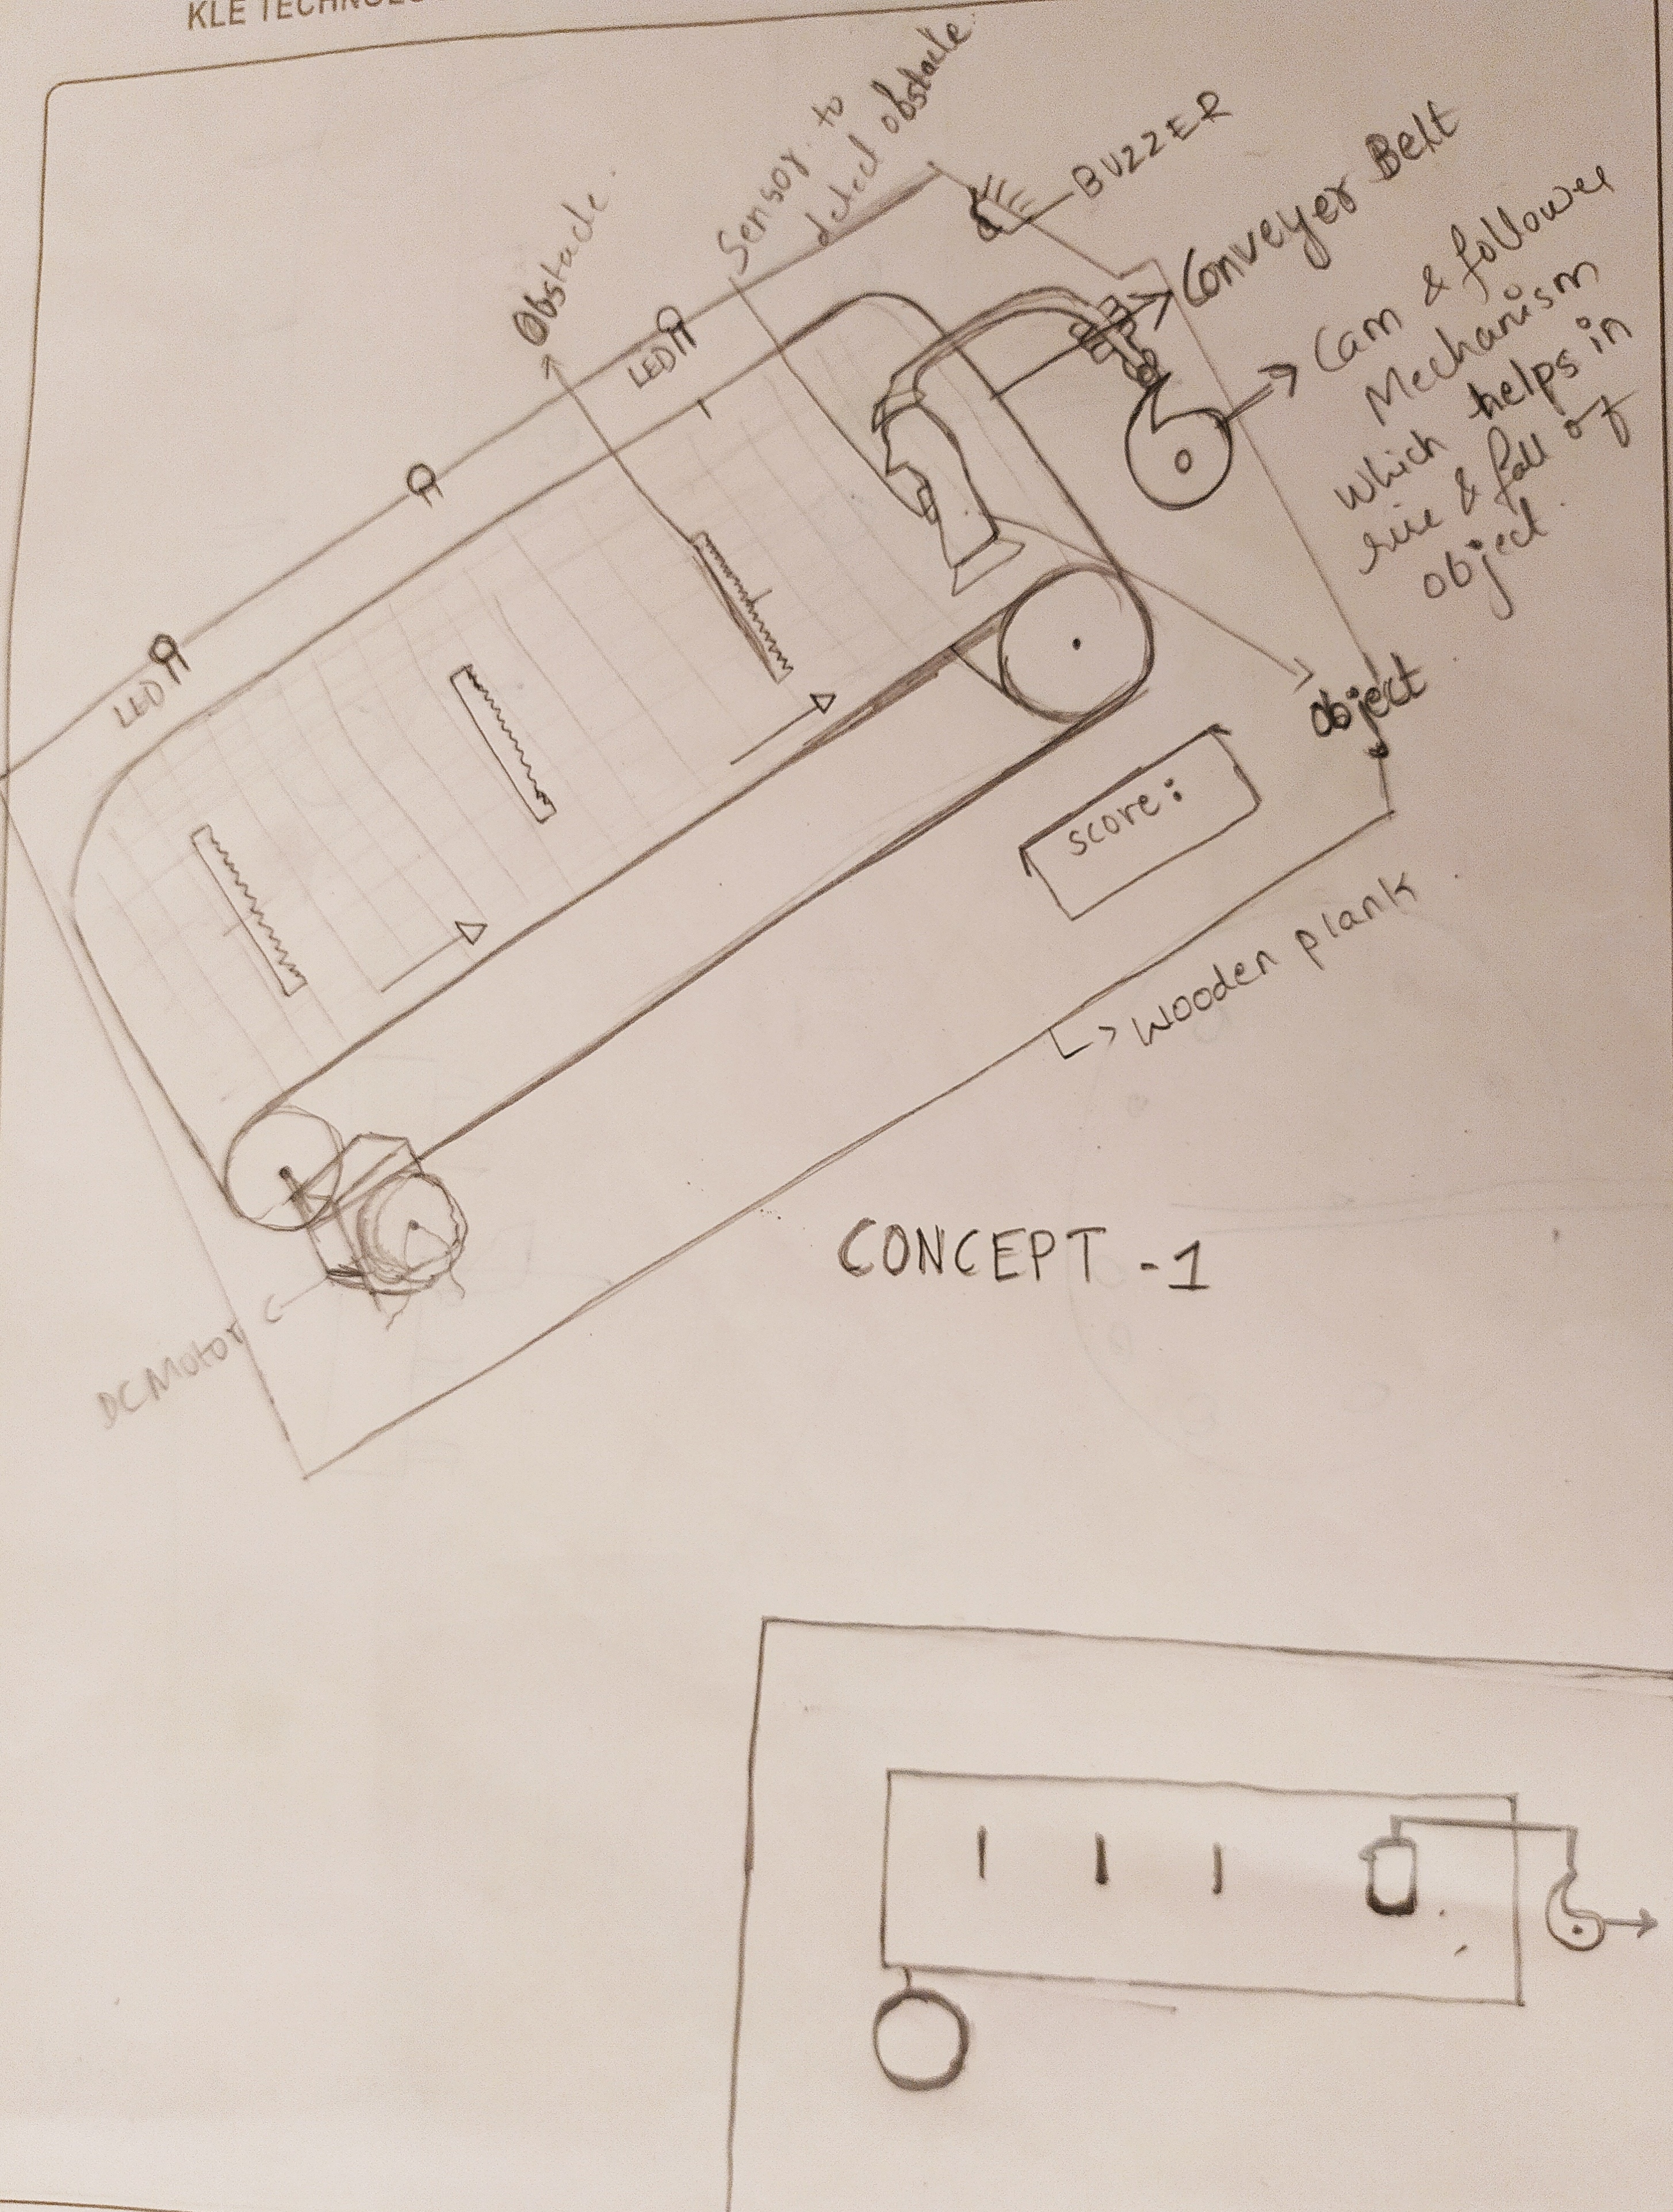 KLE TECHNOLO
Obstacle.
Sensor to
detect obstacle
BUZZER
Conveyer Belt
Cam & follower
Mechanism
which helps in
rise & fall of
object.
LED
LED
object
score:
Wooden plank
DC Motor
CONCEPT -1